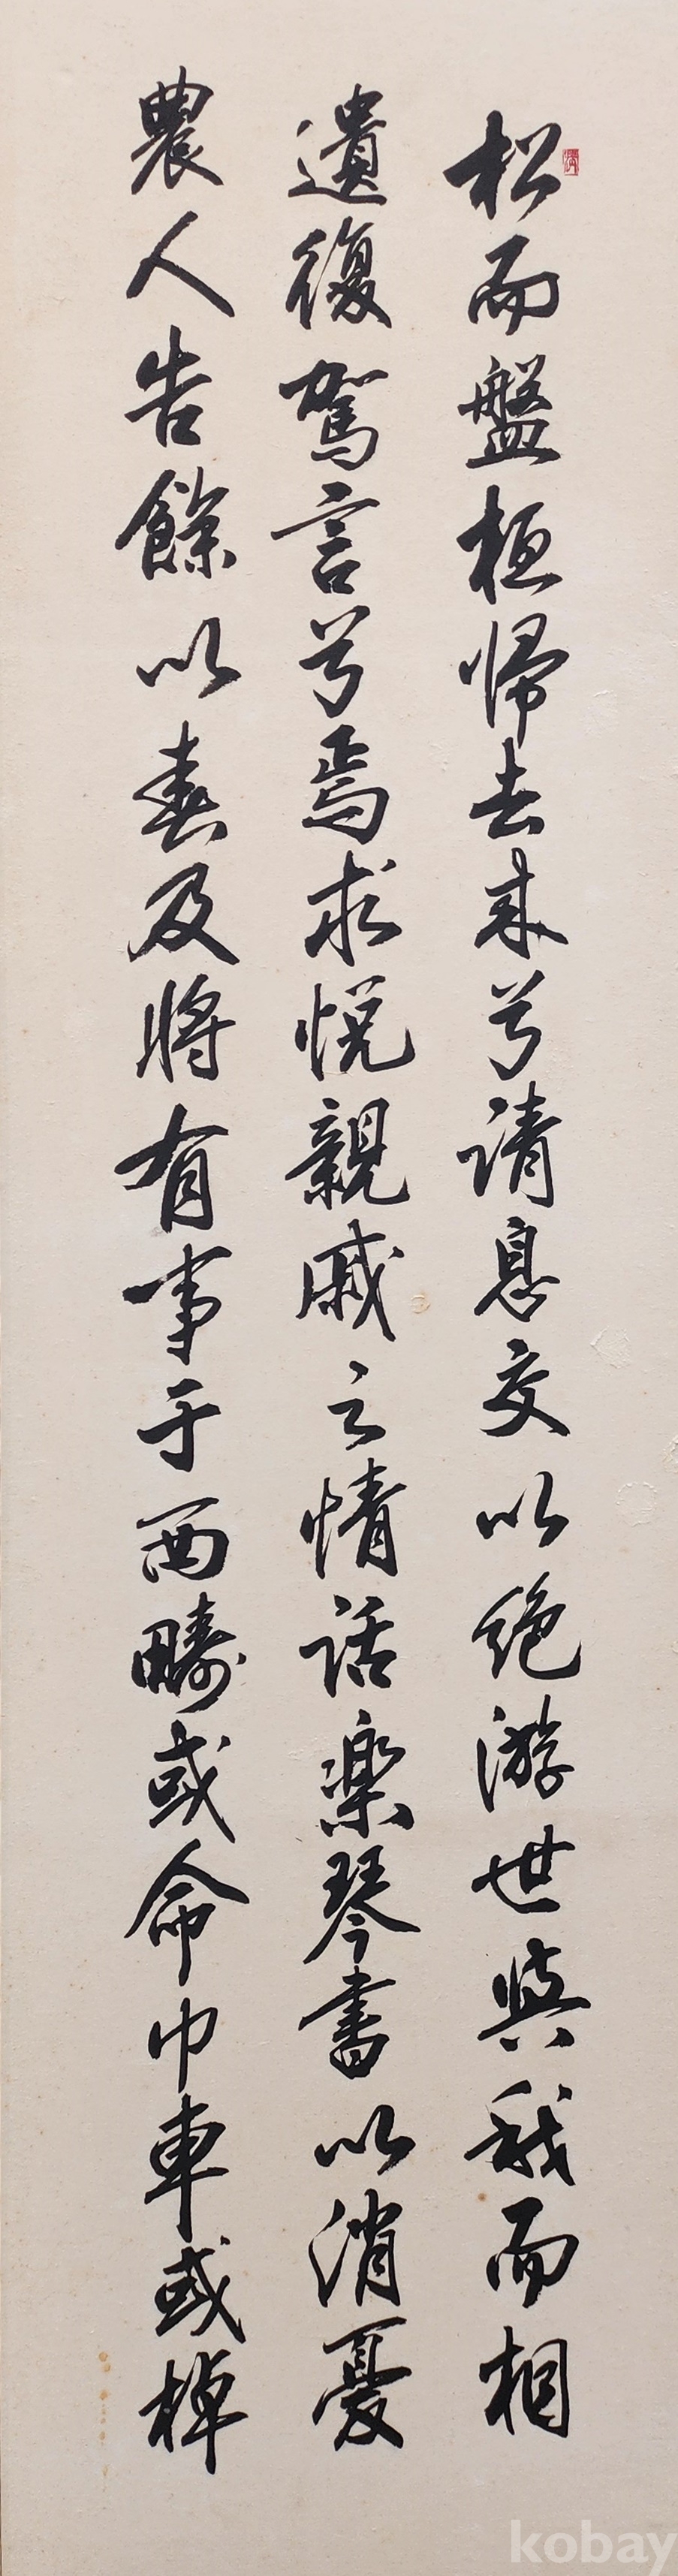 松而盤桓歸去来兮请息交以绝游世與我而相
遺復駕言兮焉求悦親戚之情話楽琴書以消憂
農人告餘以春及將有事于西疇或命巾車或棹
kobay